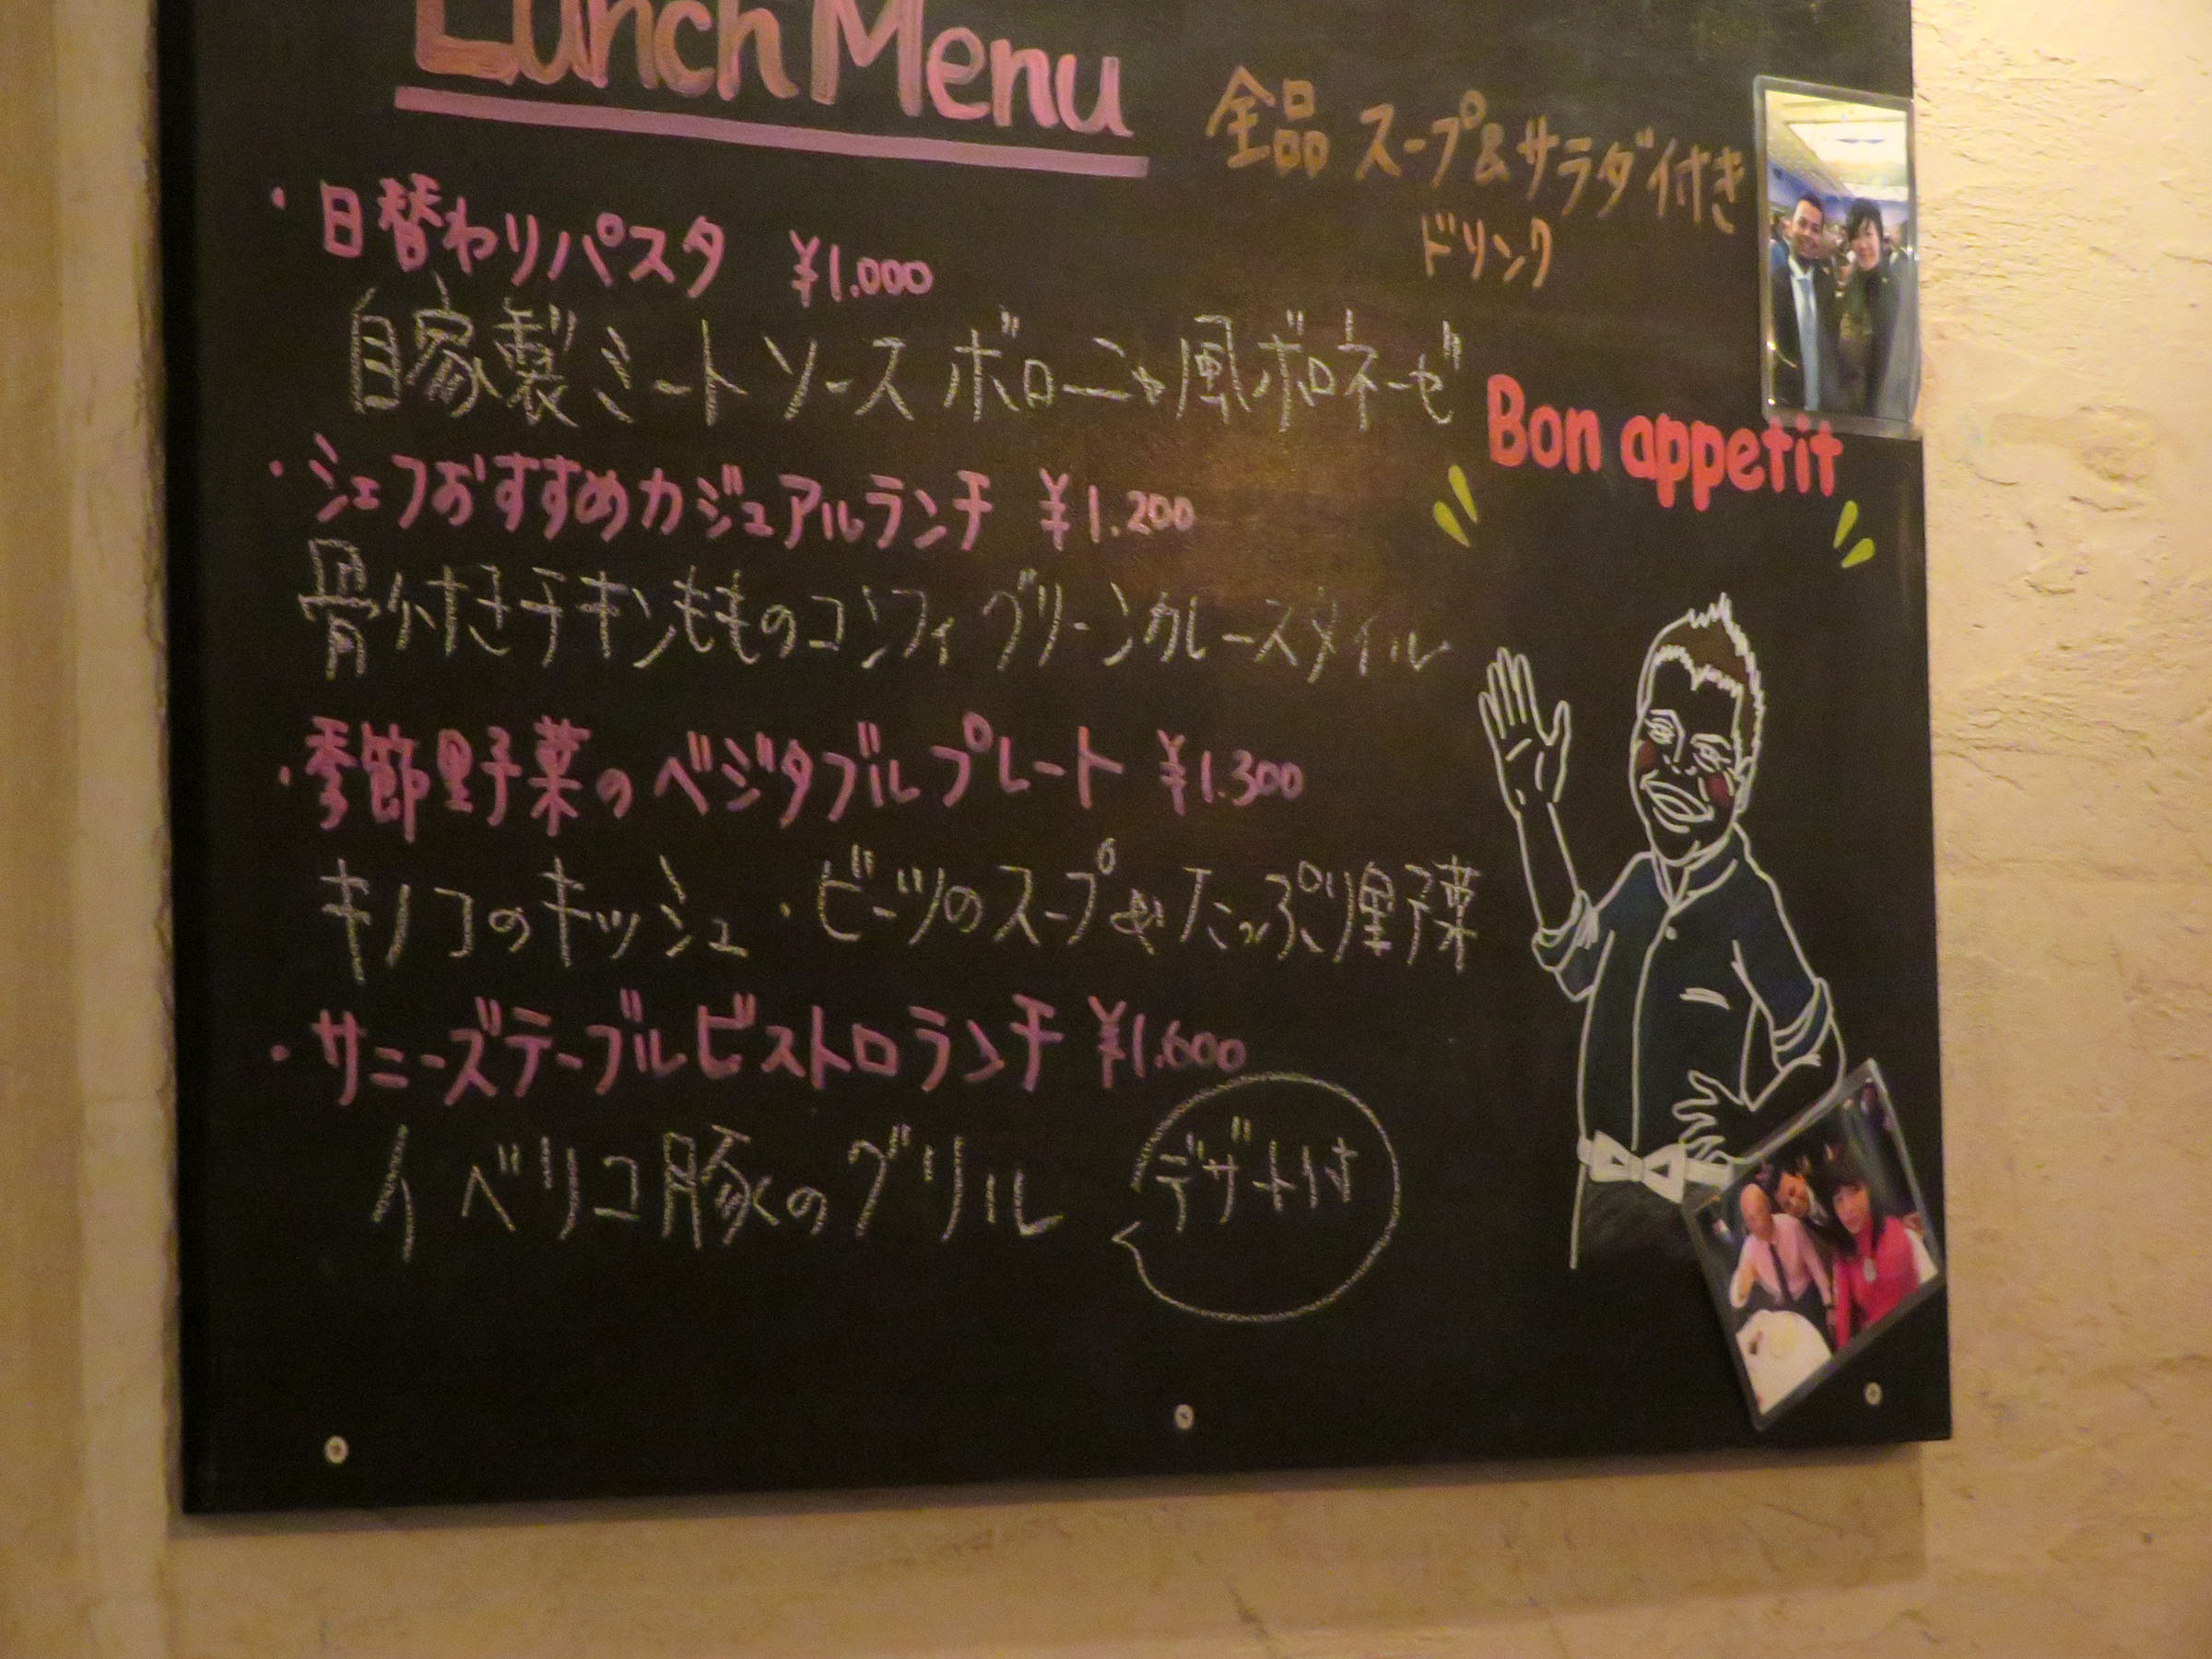 Lunch Menu
全品 スープ&サラダ付き
ドリンク
・日替わりパスタ ¥1.000
自家製ミートソース ボローニャ風ボロネーゼ
Bon appetit
・シェフおすすめカジュアルランチ ¥1.200
骨付きチキンもものコンフィ グリーンカレースタイル
・季節野菜のベジタブルプレート ¥1.300
キノコのキッシュ・ビーツのスープ&たっぷり野菜
・サニーズテーブルビストロランチ ¥1.600
イベリコ豚のグリル
デザート付